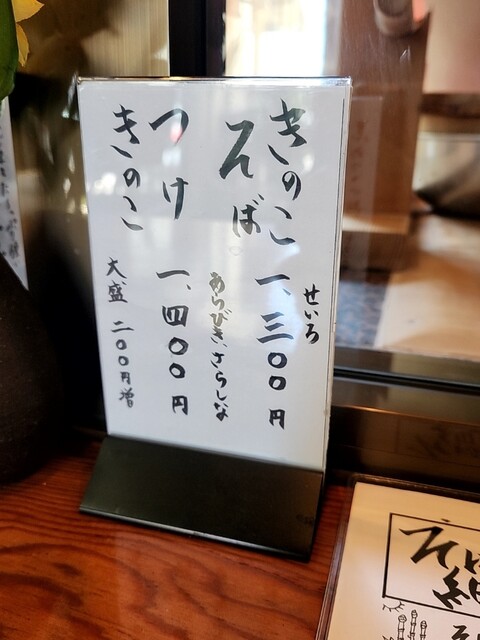 きのこ
そば
せいろ
一、三〇〇円
あらびき、さらしな
一、四〇〇円
つけ
きのこ
大盛 二〇〇円増
そば